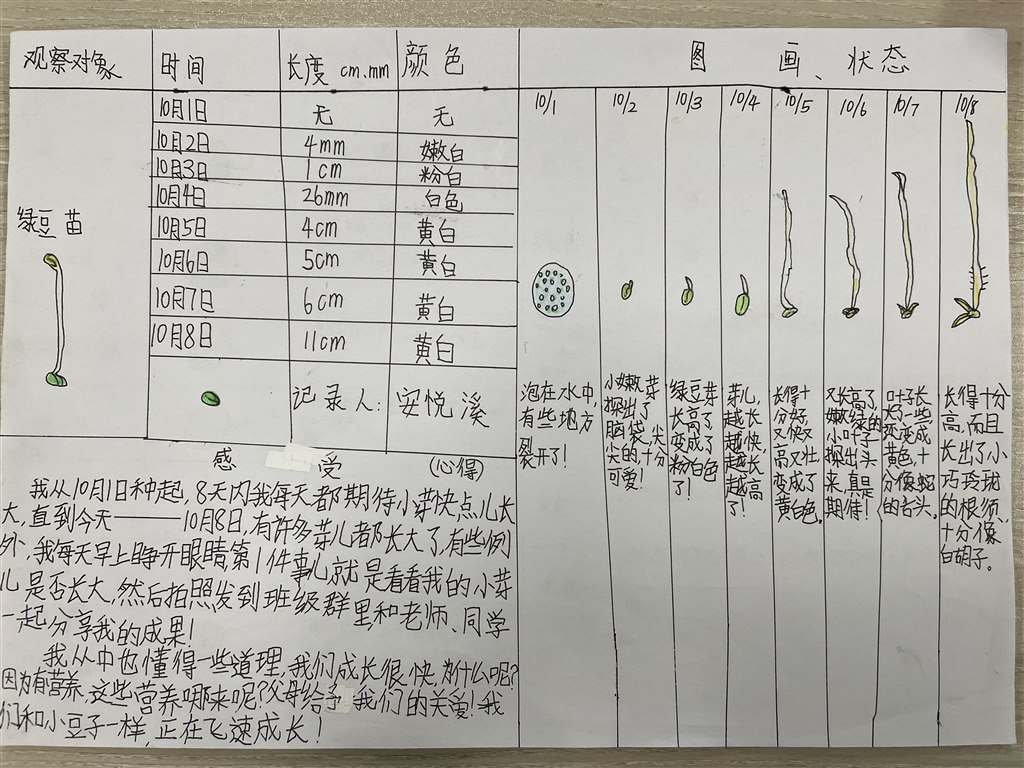 观察对象 时间 长度 cm、mm 颜色 图画、状态
绿豆苗
10月1日 无 无
10月2日 4mm 嫩白
10月3日 1cm 粉白
10月4日 26mm 白色
10月5日 4cm 黄白
10月6日 5cm 黄白
10月7日 6cm 黄白
10月8日 11cm 黄白
记录人：安悦溪
感受(心得)
我从10月1日种起，8天内我每天都期待小芽快点儿长
大，直到今天——10月8日，有许多芽儿都长大了，有些例
外，我每天早上睁开眼睛第1件事儿就是看看我的小芽
儿是否长大，然后拍照发到班级群里和老师、同学
一起分享我的成果！
我从中也懂得一些道理，我们成长很快，为什么呢？
因为有营养，这些营养哪来呢？父母给予我们的关爱！我
们和小豆子一样，正在飞速成长！
10/1
泡在水中，
有些地方
裂开了！
10/2
小嫩芽
探出了
脑袋，尖
尖的，十分
可爱！
10/3
绿豆芽
长高了
变成了
粉白色
了！
10/4
芽儿，
越长
越快，
越长
越高
了！
10/5
长得十
分好，
又快又
高又壮
变成了
黄白色。
10/6
又长高了，
嫩绿的
小叶子
探出头
来，真是
期待！
10/7
叶子长
大了一些
变变成
黄色，十
分像蛇
的舌头。
10/8
长得十分
高，而且
长出了小
巧玲珑
的根须，
十分像
白胡子。